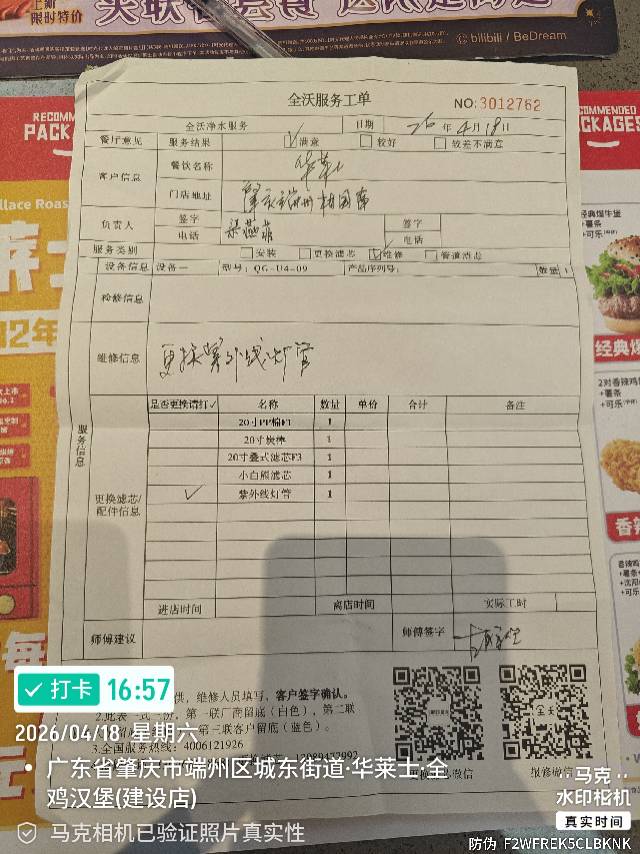 上新
限时特价
bilibili / BeDream
RECOMM
PACKA
COMMENDED
CKAGES
全沃服务工单
NO:3012762
全沃净水服务
日期
26年4月18日
餐厅意见
服务结果
满意
较好
较差不满意
客户信息
餐饮名称
华莱士
门店地址
负责人
签字
电话
梁燕菲
签字
电话
服务类别
安装
更换滤芯
维修
管道清芯
设备信息
设备一
型号:QG-U4-09
产品序列号:
数量
1
检修信息
维修信息
更换紫外线灯管
服务信息
是否更换请打✓
名称
数量
单价
合计
备注
更换滤芯/
配件信息
20寸PP棉F1
1
20寸炭棒
1
20寸叠式滤芯F3
1
小白熊滤芯
1
✓
紫外线灯管
1
进店时间
离店时间
实际工时
师傅建议
师傅签字
供,维修人员填写,客户签字确认。
2.此表一式三份,第一联厂商留底(白色),第二联
第三联客户留底(蓝色)。
3.全国服务热线:4006121926
报修微信
llace Roas
12年
经典爆牛堡
+薯条
+可乐
经典爆
2对香辣鸡
+薯条
+可乐
香辣
打卡
16:57
2026/04/18 星期六
广东省肇庆市端州区城东街道·华莱士·全
鸡汉堡(建设店)
马克相机已验证照片真实性
马克
水印相机
真实时间
防伪 F2WFREK5CLBKNK